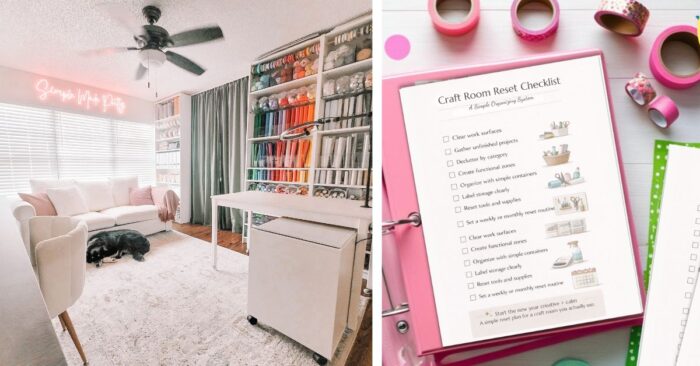 Simple Made Pretty
Craft Room Reset Checklist
A Simple Organizing System
Clear work surfaces
Gather unfinished projects
Declutter by category
Create functional zones
Organize with simple containers
Label storage clearly
Reset tools and supplies
Set a weekly or monthly reset routine
Clear work surfaces
Create functional zones
Organize with simple containers
Label storage clearly
Reset tools and supplies
Set a weekly or monthly reset routine
Start the new year creative + calm
A simple reset plan for a craft room you actually use.